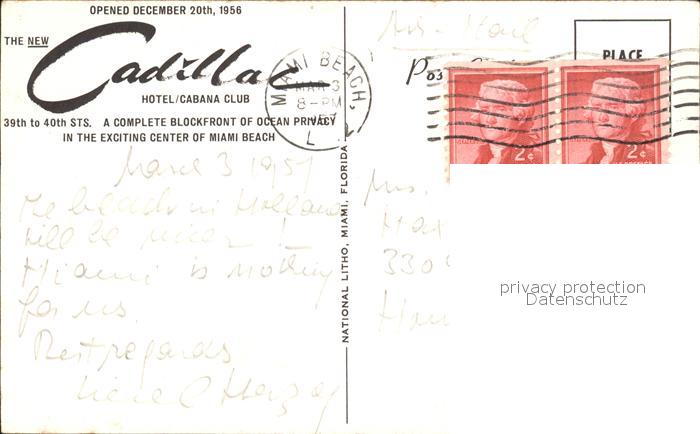 OPENED DECEMBER 20th, 1956
THE NEW
Cadillac
HOTEL/CABANA CLUB
39th to 40th STS. A COMPLETE BLOCKFRONT OF OCEAN PRIVACY
IN THE EXCITING CENTER OF MIAMI BEACH
MIAMI BEACH,
MAR 3
8-PM
L
March 3 1957
The beach in Holland
will be nicer !
Miami is nothing
for us
Best regards
NATIONAL LITHO, MIAMI, FLORIDA
Air-Mail
PLACE
2¢
2¢
Mrs.
330
privacy protection
Datenschutz